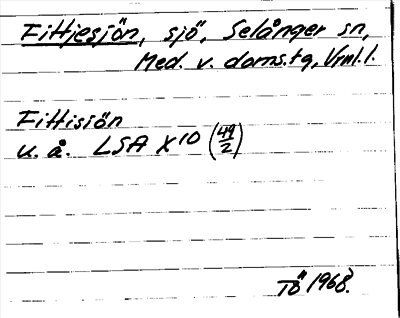 Fittjesjön, sjö, Selånger sn,
Med. v. doms.tg, Vrml.l.
Fittisiön
u. å. LSA X 10 (49/2)
TÖ 1968.